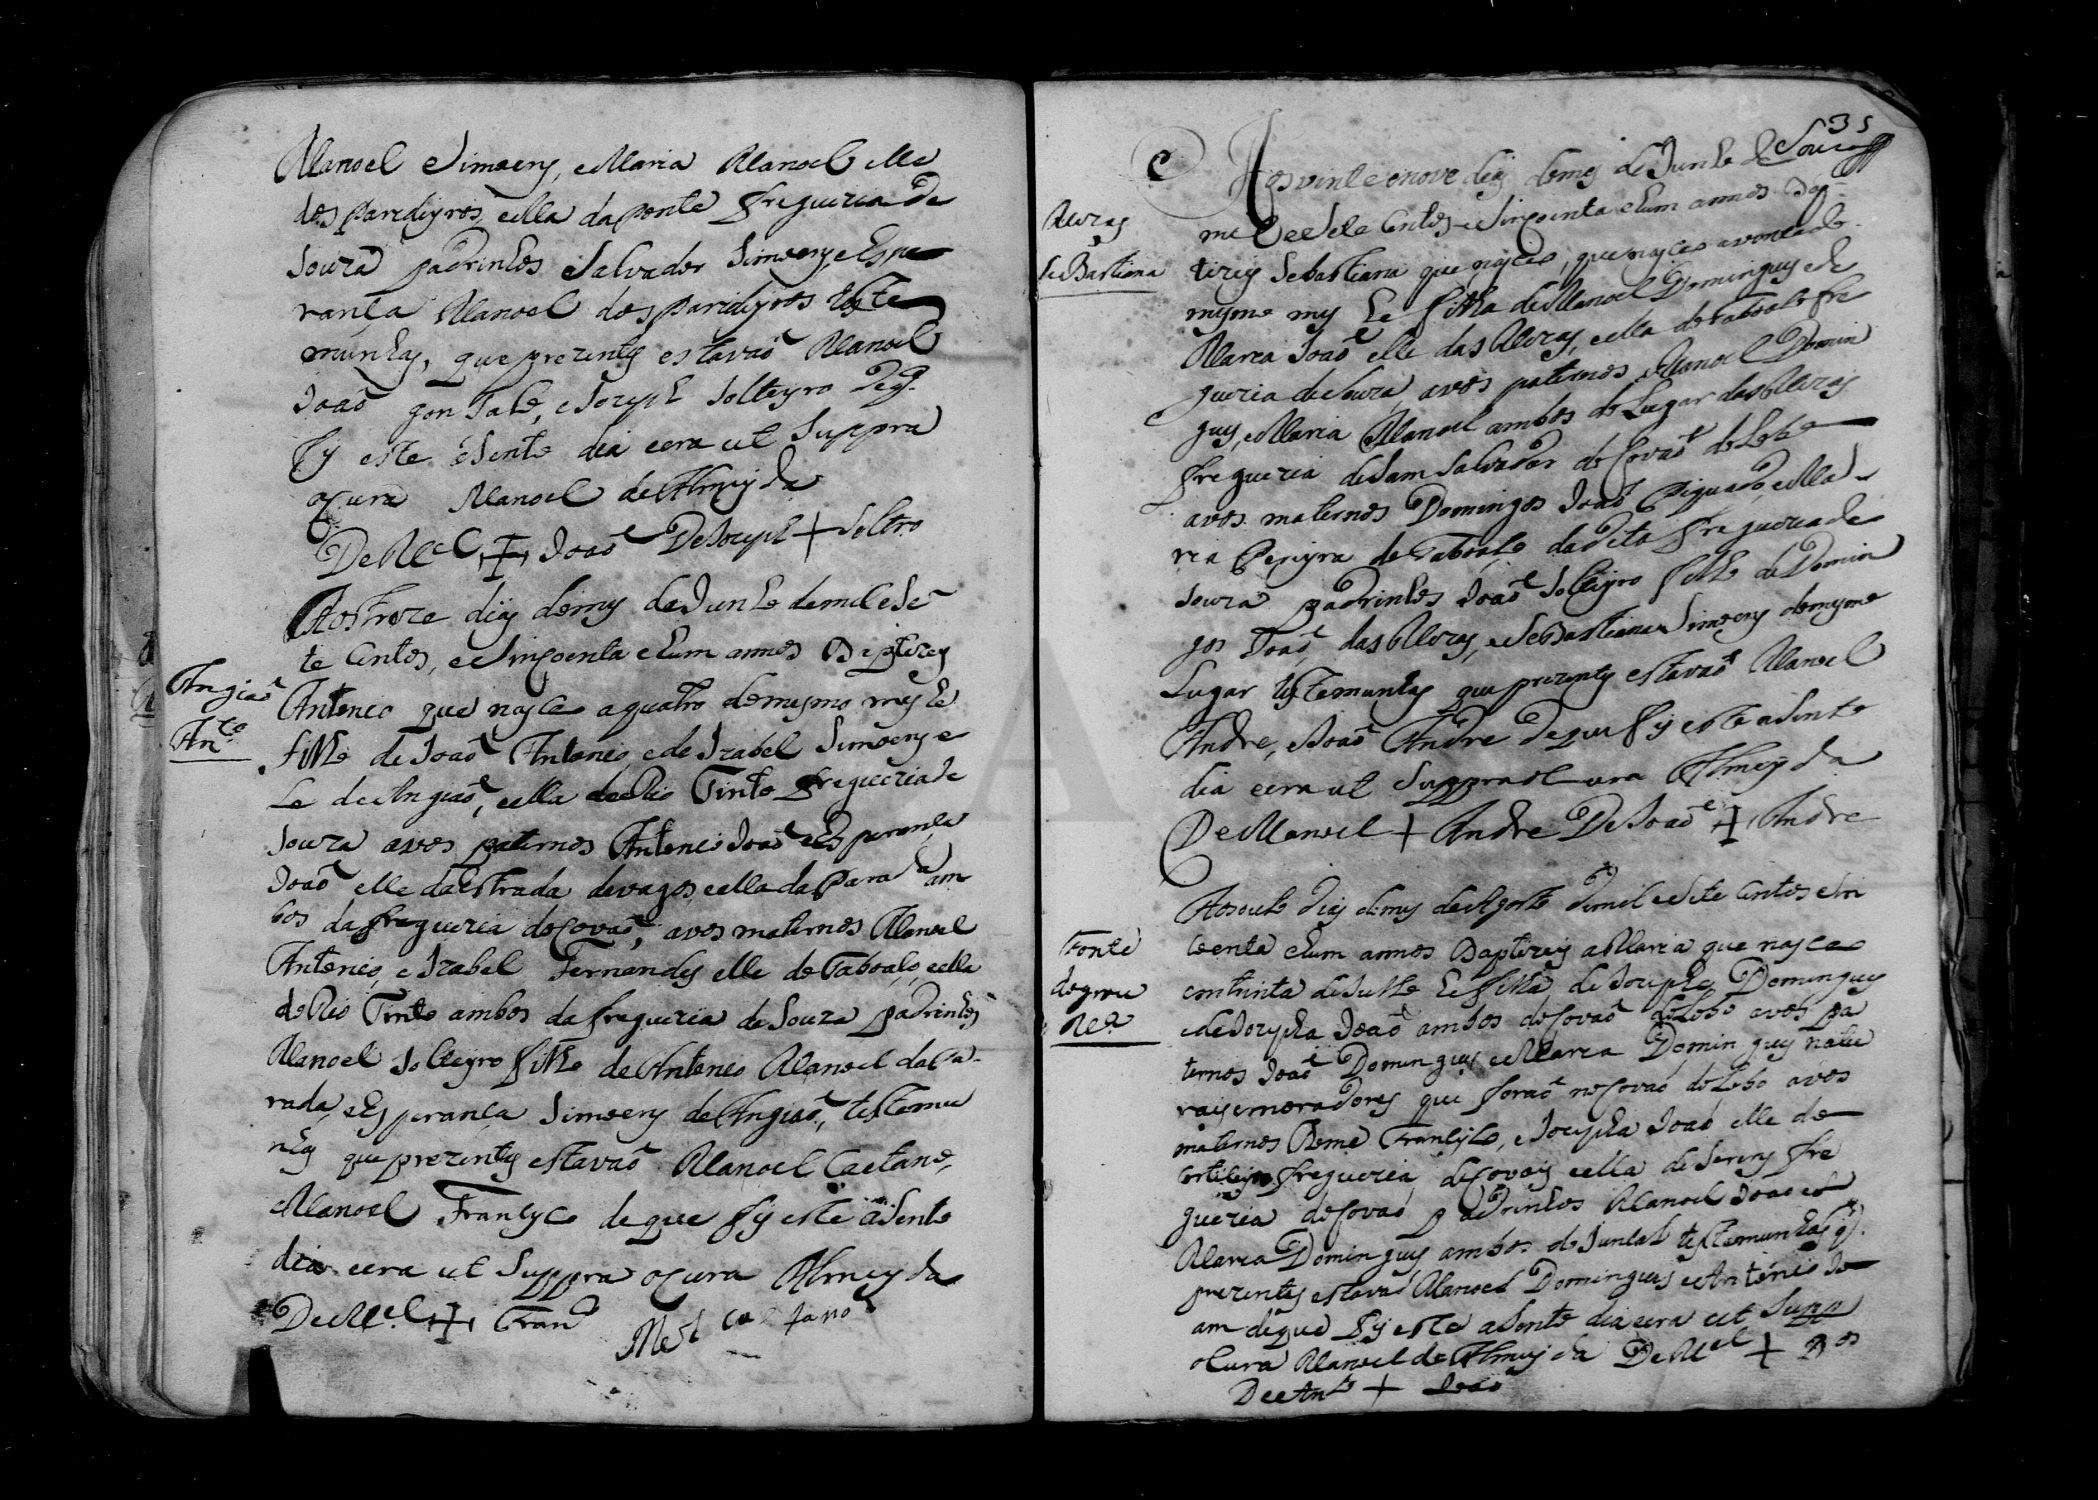 Manoel Simoens, e Maria Manoel elle
dos paredeyros, e ella da ponte freguezia de
Souza padrinhos Salvador Simoens, e Espe
rança Manoel dos paredeyros teste
munhas, que prezentes estavaõ Manoel
Joaõ gonsalo, e Joseph Solteyro de q.
fis este asento dia e era ut suppra
o Cura Manoel de Almeyda
De M.el + Joaõ De Joseph + Soltro
Aos treze dias do mes de Junho de mil e se
te Centos, e Sincoenta e hum annos Baptizey
Angiaõ
Ant.o
Antonio que nasceo a quatro do mesmo mes he
filho de Joaõ Antonio, e de Izabel Simoens e
le de Angiaõ, e ella do Rio Tinto freguezia de
Souza avos paternos Antonio Joaõ e Esperança
Joaõ elle da Estrada de vagos e ella da Parada am
bos da freguezia de Covaõ, avos maternos Manoel
Antonio, e Izabel Fernandes elle de Taboaço, e ella
do Rio Tinto ambos da freguezia de Souza padrinhos
Manoel Solteyro filho de Antonio Manoel da Pa
rada, e Esperança Simoens de Angiaõ, testemu
nhas que prezentes estavaõ Manoel Caetano,
e Manoel Francisco de que fis este asento
dia e era ut suppra o Cura Almeyda
De M.el + Fran.co Mel Caetano
35
Souza
Aos vinte e nove dias do mes de Junho de
mil e Sete Centos e Sincoenta e hum annos Bap
Sebastiana
tizey Sebastiana que nasceo, que nasceo a vonte do
mesmo mes he filha de Manoel Domingues e de
Maria Joaõ elle das Moras, e ella de Taboaço fre
guezia de Souza, avos paternos Manoel Domin
gues, e Maria Manoel ambos do Lugar das Moras
freguezia de Sam Salvador de Covaõ do Lobo
avos maternos Domingos Joaõ e Ma
ria Pereyra de Taboaço da dita freguezia de
Souza padrinhos Joaõ Solteyro filho de Domin
gos Joaõ das Moras, e Sebastiana Simoens do mesmo
Lugar testemunhas que prezentes estavaõ Manoel
Andre, e Joaõ Andre de que fis este asento
dia e era ut Suppra o Cura Almeyda
De Manoel + Andre De Joaõ + Andre
Aos outo dias do mes de Agosto de mil e Sete Centos e Sin
Fonte
coenta e hum annos Baptizey a Maria que nasceo
com trinta de Julho he filha de Joseph Domingues
e de Josepha Joaõ ambos de Covaõ do Lobo avos pa
ternos Joaõ Domingues e Maria Domingues natu
rais e moradores que foraõ no Covaõ do Lobo avos
maternos Francisco, e Josepha Joaõ elle de
freguezia de e ella de fre
guezia de Covaõ padrinhos Manoel Joaõ e
Maria Domingues ambos de Juncal testemunhas q.
prezentes estavaõ Manoel Domingues e Antonio Jo
am de que fis este asento dia e era ut Supp
o Cura Manoel de Almeyda De M.el + D.os
De Ant.o + Joaõ